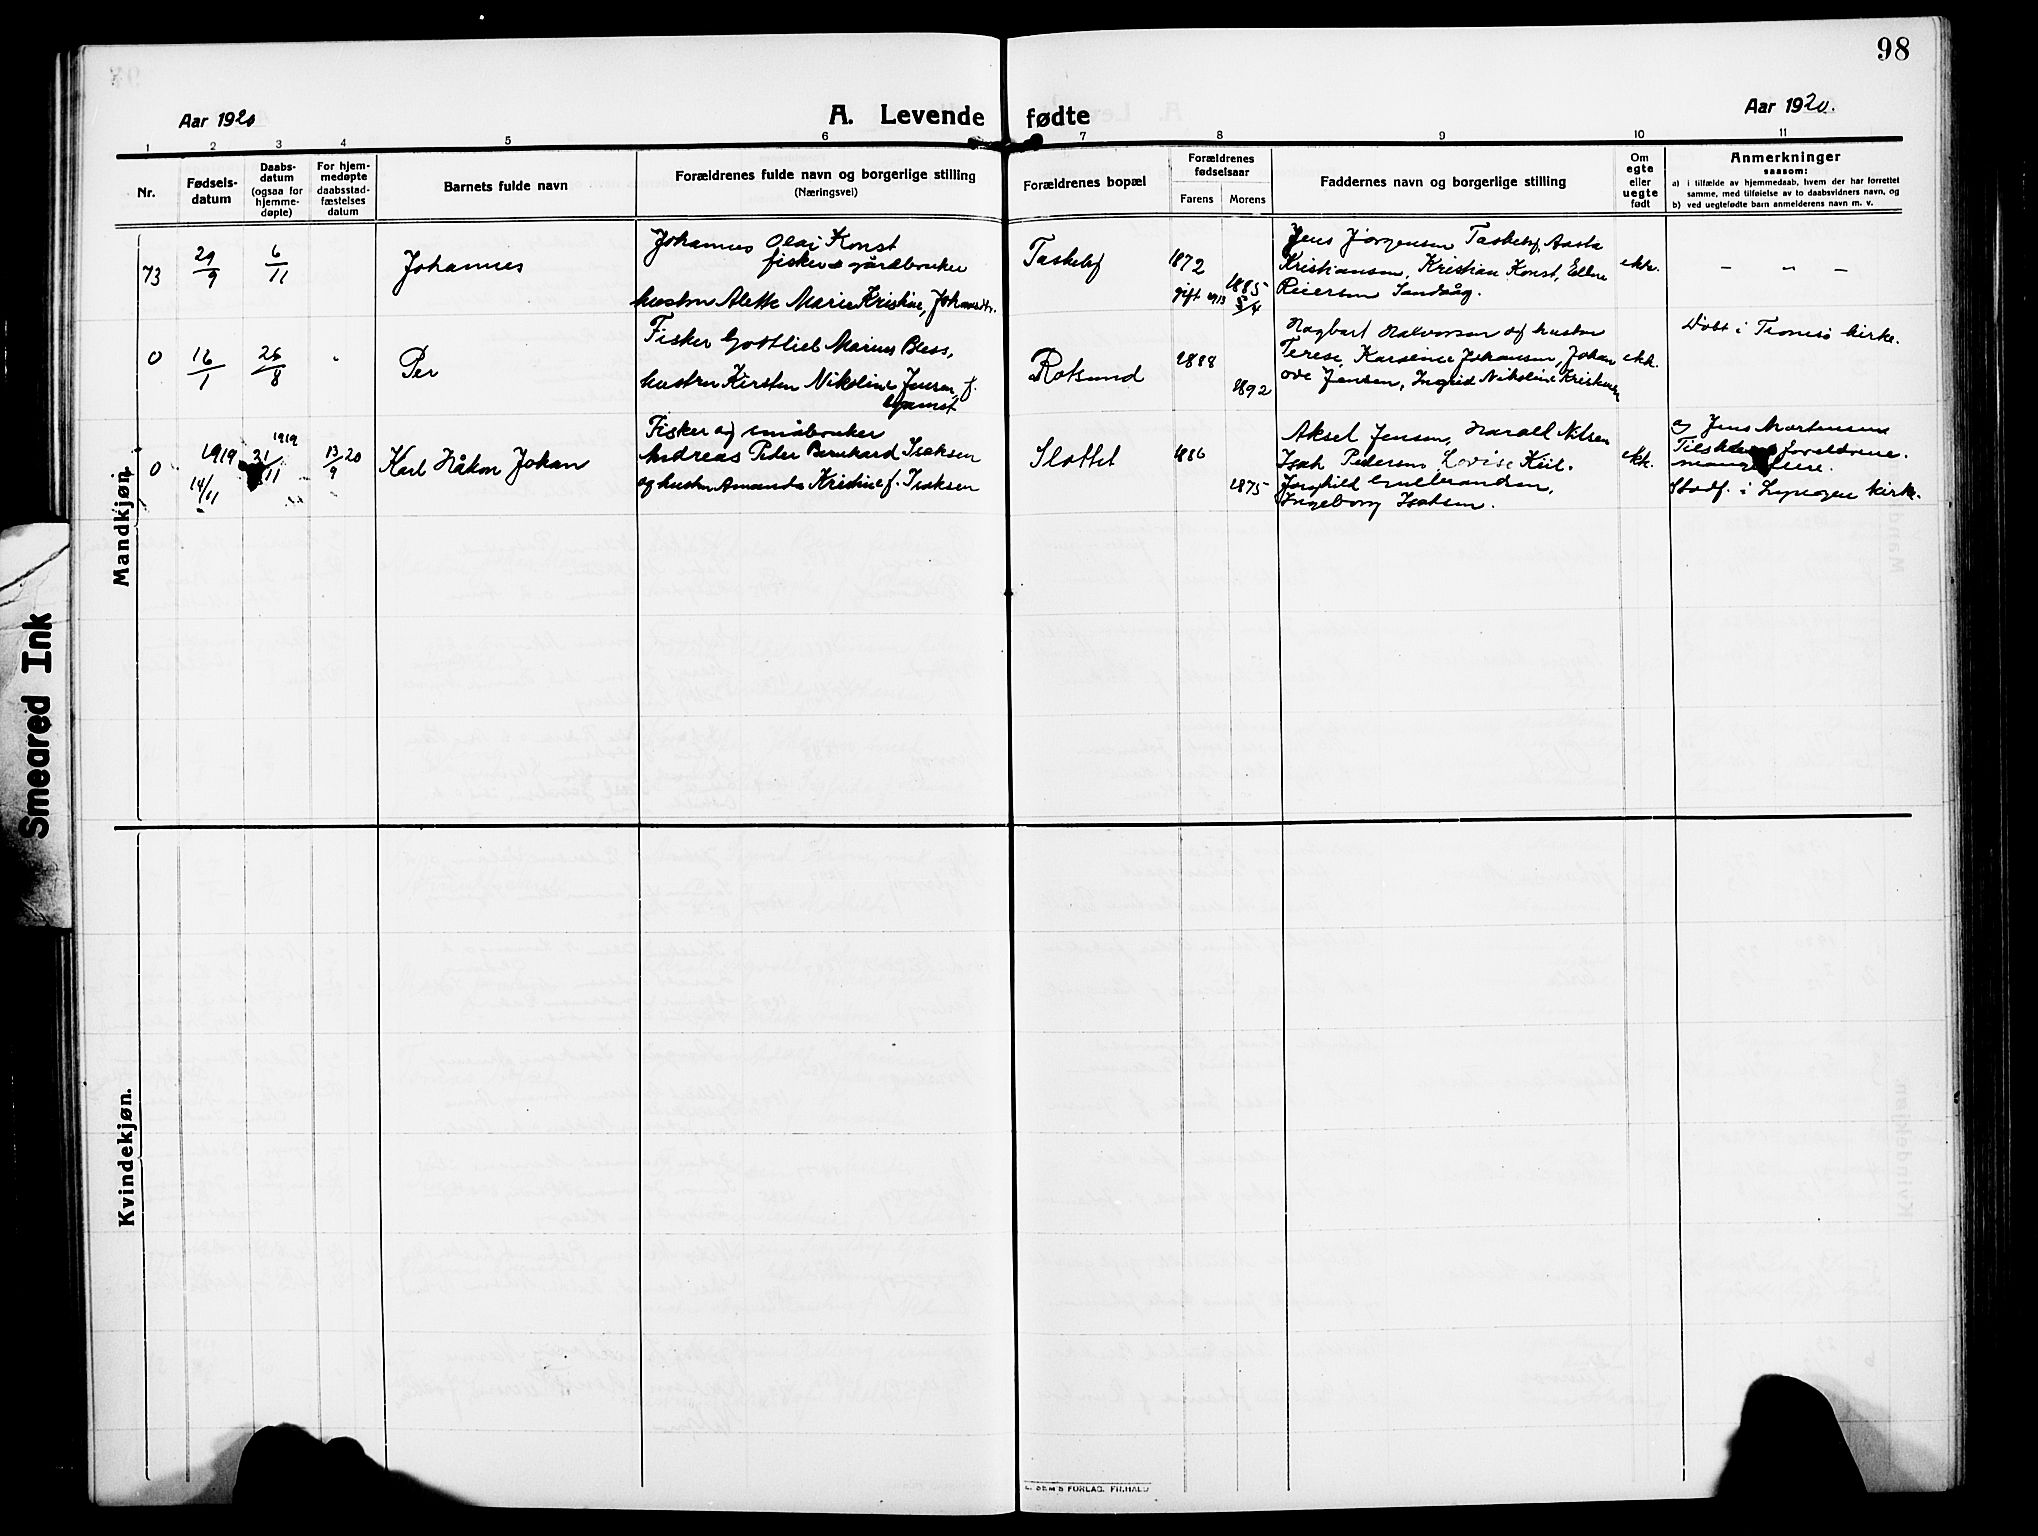 98
Aar 1920
A. Levende fødte
Aar 1920.
1 2 3 4 5 6 7 8 9 10 11
Nr.
Fødsels-
datum
Daabs-
datum
(ogsaa for
hjemme-
døpte)
For hjem-
medøpte
daabsstad-
fæstelses
datum
Barnets fulde navn
Forældrenes fulde navn og borgerlige stilling
(Næringsvei)
Forældrenes bopæl
Forældrenes
fødselsaar
Farens Morens
Faddernes navn og borgerlige stilling
Om
egte
eller
uegte
født
Anmerkninger
saasom:
a) i tilfælde av hjemmedaab, hvem der har forrettet
samme, med tilføielse av to daabsvidners navn, og
b) ved uegtefødte barn anmelderens navn m. v.
Mandkjøn.
73
29/9
6/11
Johannes
Johannes Olai Konst
fisker gårdbruker
hustru Alette Marie Kristine, Johansdtr.
Taskeby
1872
gift 1913
1885
5/4
Jens Jørgensen Taskeby, Aasta
Kristiansen, Kristian Konst, Ellen
Reiersen Sandvåg.
ekt.
– " –
0
16/1
26/8
"
Per
Fisker Gottlieb Marius Bless,
hustru Kirsten Nikoline Jensen f.
Gamst
Rotsund
1888
1892
Hagbart Halvorsen og hustru
Terese, Karoline Johansen, Johan
Jensen, Ingrid Nikoline Kristiansen
ekt.
Døbt i Tromsø kirke.
0
1919
14/11
1919
21/11
13/9 20
Karl Håkon Johan
Fisker og småbruker
Andreas Peder Bernhard Isaksen
og hustru Amanda Kristine f. Isaksen
Slottet
1886
1875
Aksel Jensen, Harald Nilsen
Isak Pedersen, Lovise Kiil.
Jorghild Gulbrandsen,
Ingeborg Isaksen.
ekt.
av Jens Mortensen
Tilstede foreldrene.
mange flere.
Stadf. i Lyngen kirke.
Kvindekjøn.
Smeared Ink
SEM'S FORLAG. FR.HALD